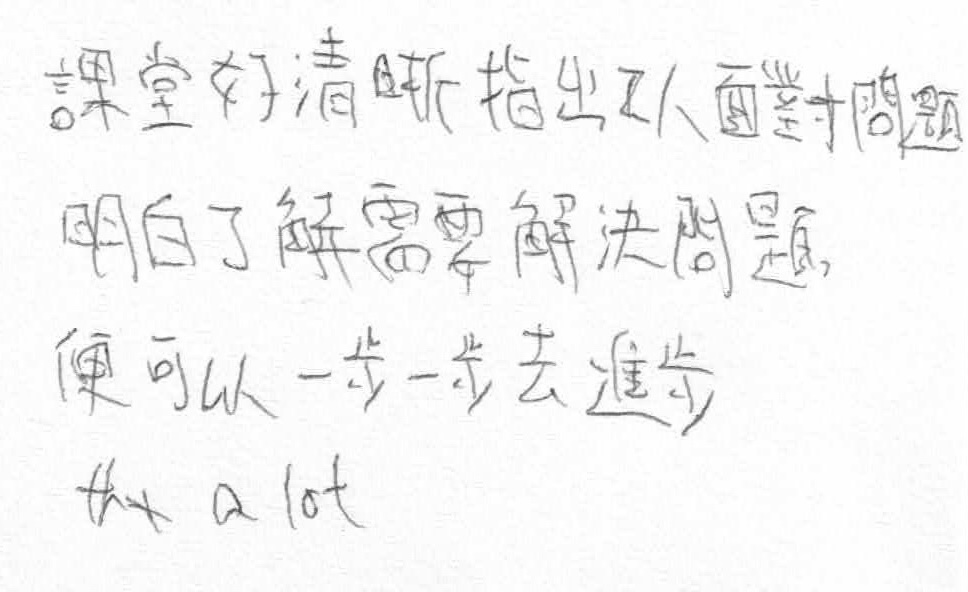 課堂好清晰指出以人面對問題
明白了解需要解決問題,
便可以一步一步去進步
thx a lot